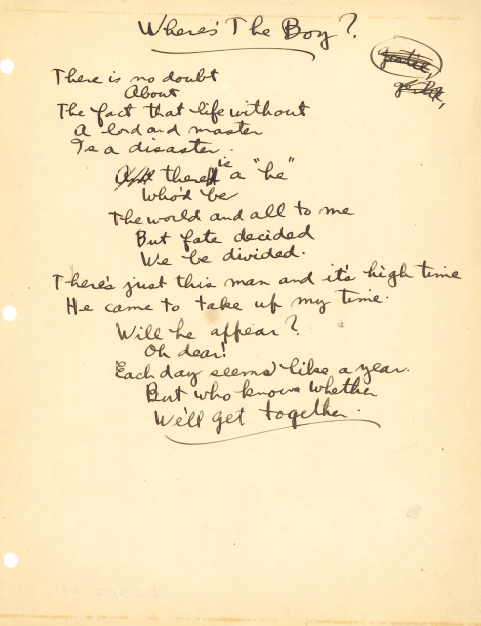 Where's The Boy?
There is no doubt
About
The fact that life without
A lord and master
Is a disaster.
there is a "he"
Who'd be
The world and all to me
But fate decided
We be divided.
There's just this man and it's high time
He came to take up my time.
Will he appear?
Oh dear!
Each day seems like a year.
But who knows whether
We'll get together.